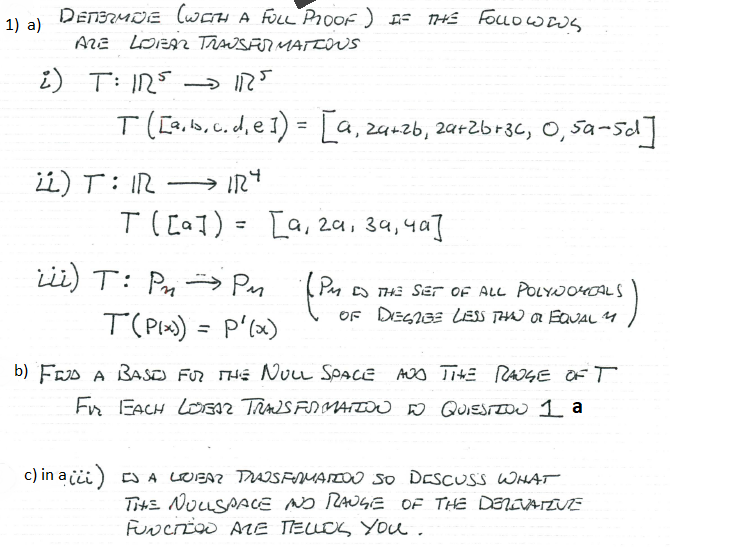 1) a) DETERMINE (WITH A FULL PROOF) IF THE FOLLOWING
ARE LINEAR TRANSFORMATIONS
i) T: ℝ⁵ → ℝ⁵
T([a,b,c,d,e]) = [a, 2a+2b, 2a+2b+3c, 0, 5a-5d]
ii) T: ℝ → ℝ⁴
T([a]) = [a, 2a, 3a, 4a]
iii) T: Pₙ → Pₙ (Pₙ IS THE SET OF ALL POLYNOMIALS
OF DEGREE LESS THAN OR EQUAL n)
T(P(x)) = P'(x)
b) FIND A BASIS FOR THE NULL SPACE AND THE RANGE OF T
FOR EACH LINEAR TRANSFORMATION IN QUESTION 1 a
c) in a iii) IS A LINEAR TRANSFORMATION SO DISCUSS WHAT
THE NULLSPACE AND RANGE OF THE DERIVATIVE
FUNCTION ARE TELLING YOU.